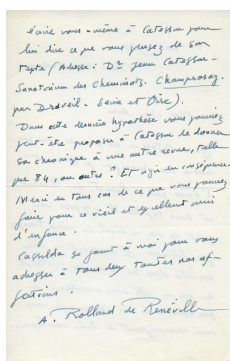 écrire vous-même à Catesson pour
lui dire ce que vous pensez de son
texte (Adresse : Dr Jean Catesson -
Sanatorium des Cheminots. Champrosay -
par Draveil - Seine et Oise).
Dans cette dernière hypothèse vous pourriez
peut-être proposer à Catesson de donner
sa chronique à une autre revue, telle
que 84, ou autre ? Et agir en conséquence.
Merci en tous cas de ce que vous pourrez
faire pour ce vieil et excellent ami
d'enfance.
Cassilda se joint à moi pour vous
adresser à tous deux toutes nos af-
fections.
A. Rolland de Renéville